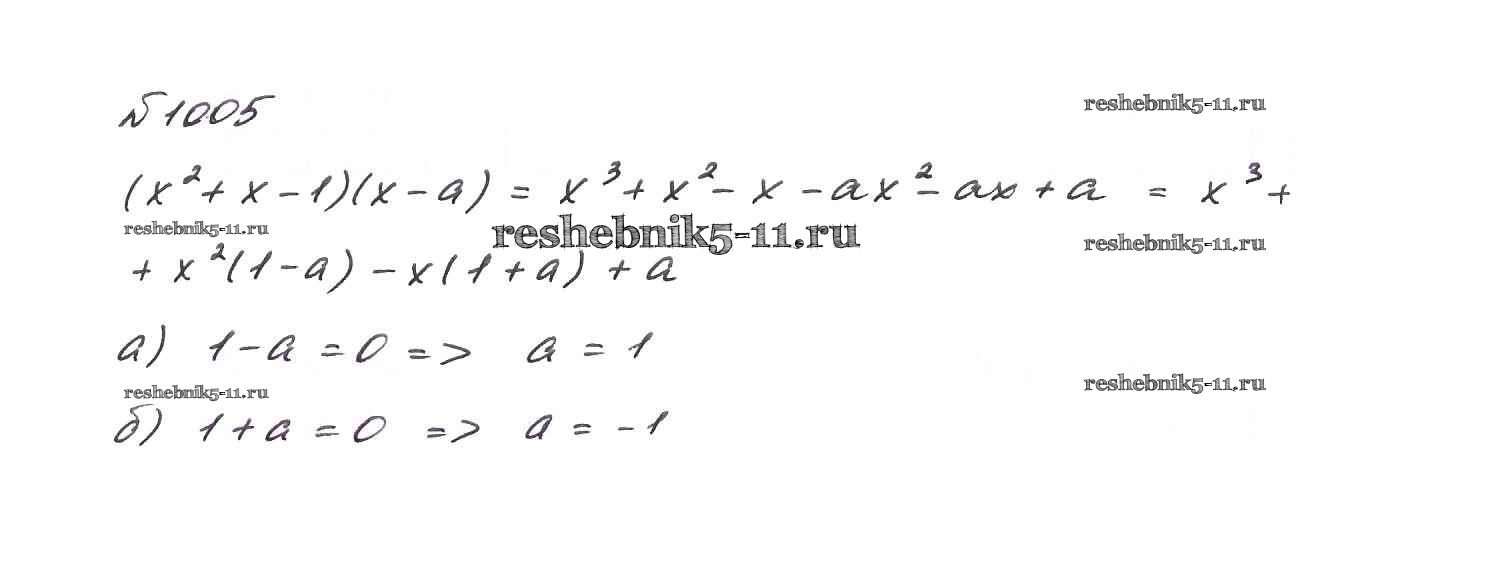 №1005
reshebnik5-11.ru
(x²+x-1)(x-a) = x³+x²-x-ax²-ax+a = x³+
reshebnik5-11.ru
reshebnik5-11.ru
reshebnik5-11.ru
+x²(1-a)-x(1+a)+a
а) 1-a=0 => a=1
reshebnik5-11.ru
reshebnik5-11.ru
б) 1+a=0 => a=-1